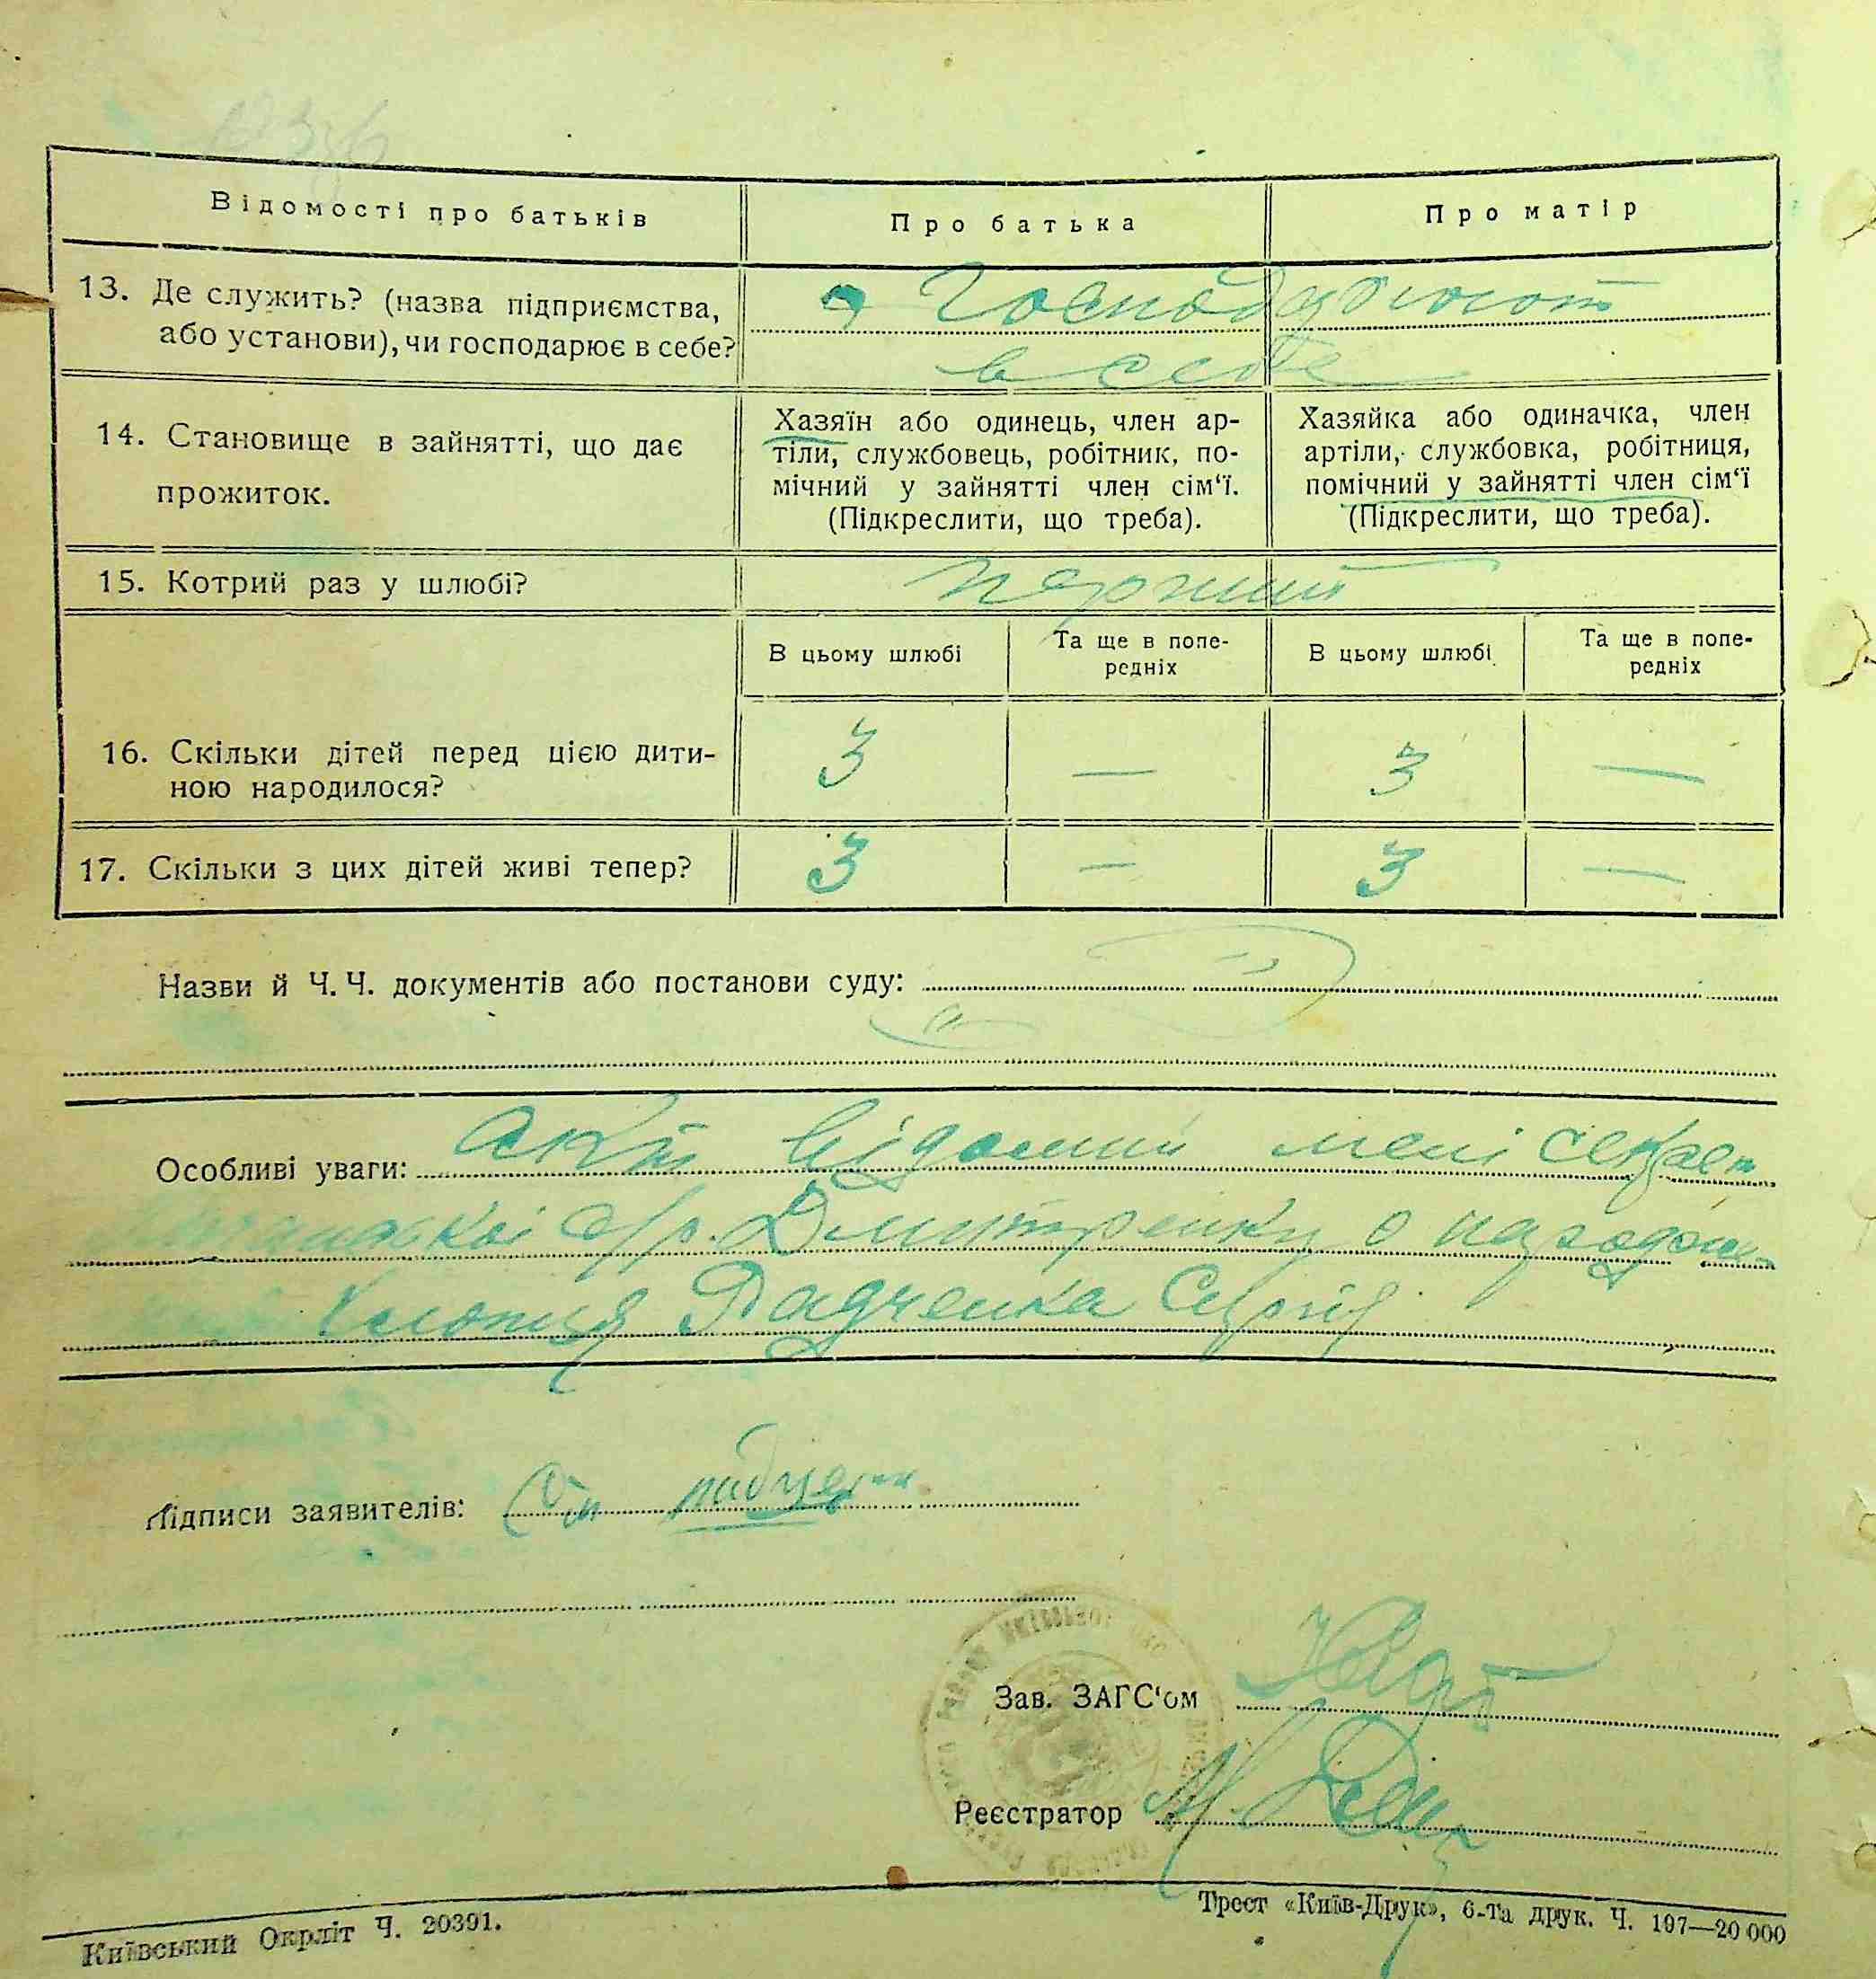 Відомості про батьків
Про батька
Про матір
13. Де служить? (назва підприємства,
або установи), чи господарює в себе?
Господарюють
в себе
14. Становище в зайнятті, що дає
прожиток.
Хазяїн або одинець, член ар-
тіли, службовець, робітник, по-
мічний у зайнятті член сім‘ї.
(Підкреслити, що треба).
Хазяйка або одиначка, член
артіли, службовка, робітниця,
помічний у зайнятті член сім‘ї
(Підкреслити, що треба).
15. Котрий раз у шлюбі?
перший
В цьому шлюбі
Та ще в попе-
редніх
В цьому шлюбі
Та ще в попе-
редніх
16. Скільки дітей перед цією дити-
ною народилося?
3 — 3 —
17. Скільки з цих дітей живі тепер?
3 — 3 —
Назви й Ч. Ч. документів або постанови суду:
Особливі уваги: Акт відомий мені секрет
с/р. Дмитренку о
хлопця Радченка Сергія
Підписи заявителів:
Зав. ЗАГС‘ом
Реєстратор
Київський Окрліт Ч. 20391.
Трест «Київ-Друк», 6-та друк. Ч. 197—20 000